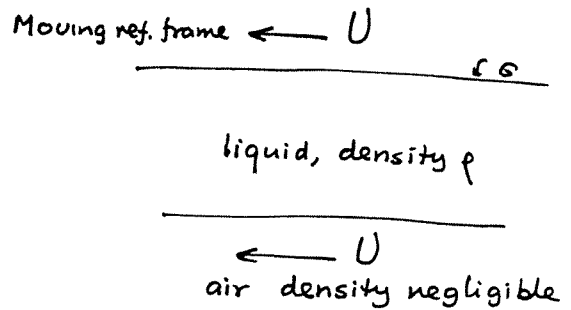 Moving ref. frame ← U
σ
liquid, density ρ
← U
air density negligible